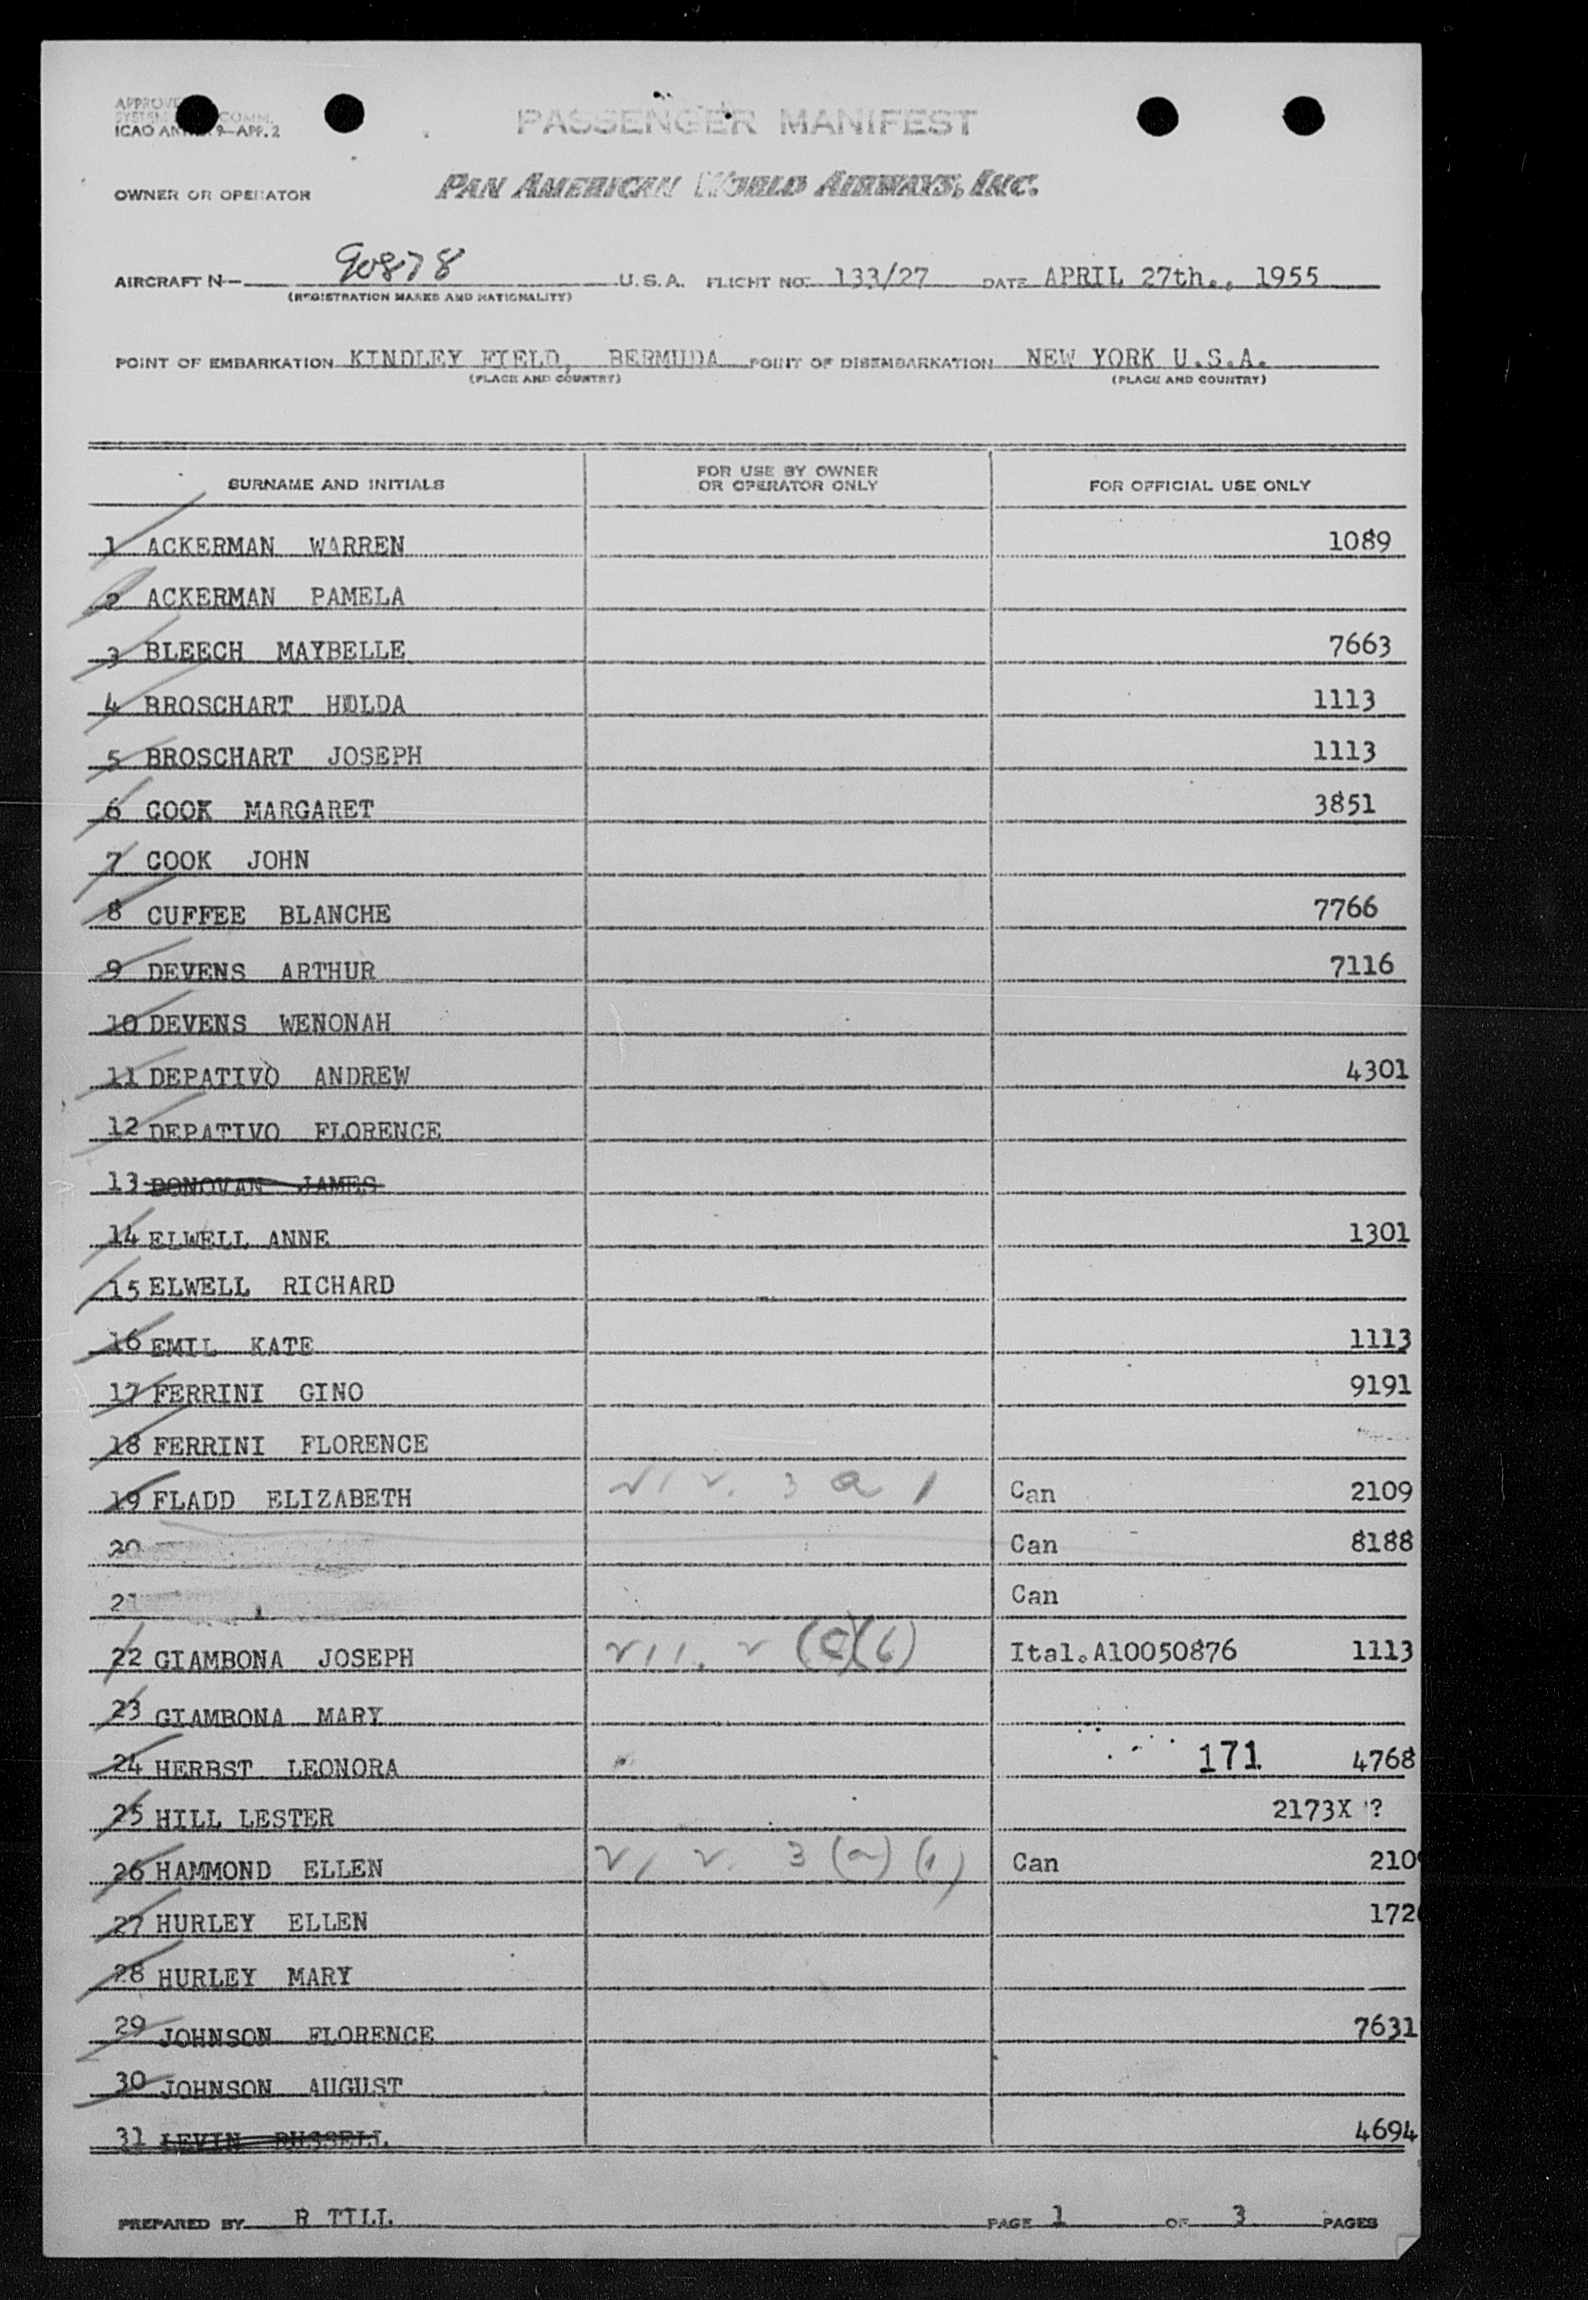 PASSENGER MANIFEST
ICAO 9—APP. 2
OWNER OR OPERATOR PAN AMERICAN WORLD AIRWAYS, INC.
AIRCRAFT N— 90878 U.S.A. FLIGHT NO. 133/27 DATE APRIL 27th., 1955
(REGISTRATION MARKS AND NATIONALITY)
POINT OF EMBARKATION KINDLEY FIELD, BERMUDA POINT OF DISEMBARKATION NEW YORK U.S.A.
(PLACE AND COUNTRY) (PLACE AND COUNTRY)
SURNAME AND INITIALS FOR USE BY OWNER OR OPERATOR ONLY FOR OFFICIAL USE ONLY
1 ACKERMAN WARREN 1089
2 ACKERMAN PAMELA
3 BLEECH MAYBELLE 7663
4 BROSCHART HULDA 1113
5 BROSCHART JOSEPH 1113
6 COOK MARGARET 3851
7 COOK JOHN
8 CUFFEE BLANCHE 7766
9 DEVENS ARTHUR 7116
10 DEVENS WENONAH
11 DEPATIVO ANDREW 4301
12 DEPATIVO FLORENCE
13 DONOVAN JAMES
14 ELWELL ANNE 1301
15 ELWELL RICHARD
16 EMIL KATE 1113
17 FERRINI GINO 9191
18 FERRINI FLORENCE
19 FLADD ELIZABETH Can 2109
20 Can 8188
21 Can
22 GIAMBONA JOSEPH Ital.A10050876 1113
23 GIAMBONA MARY
24 HERBST LEONORA 171 4768
25 HILL LESTER 2173X ?
26 HAMMOND ELLEN 3 (a) (1) Can 210
27 HURLEY ELLEN 172
28 HURLEY MARY
29 JOHNSON FLORENCE 7631
30 JOHNSON AUGUST
31 LEVIN RUSSELL 4694
PREPARED BY R TILL PAGE 1 OF 3 PAGES